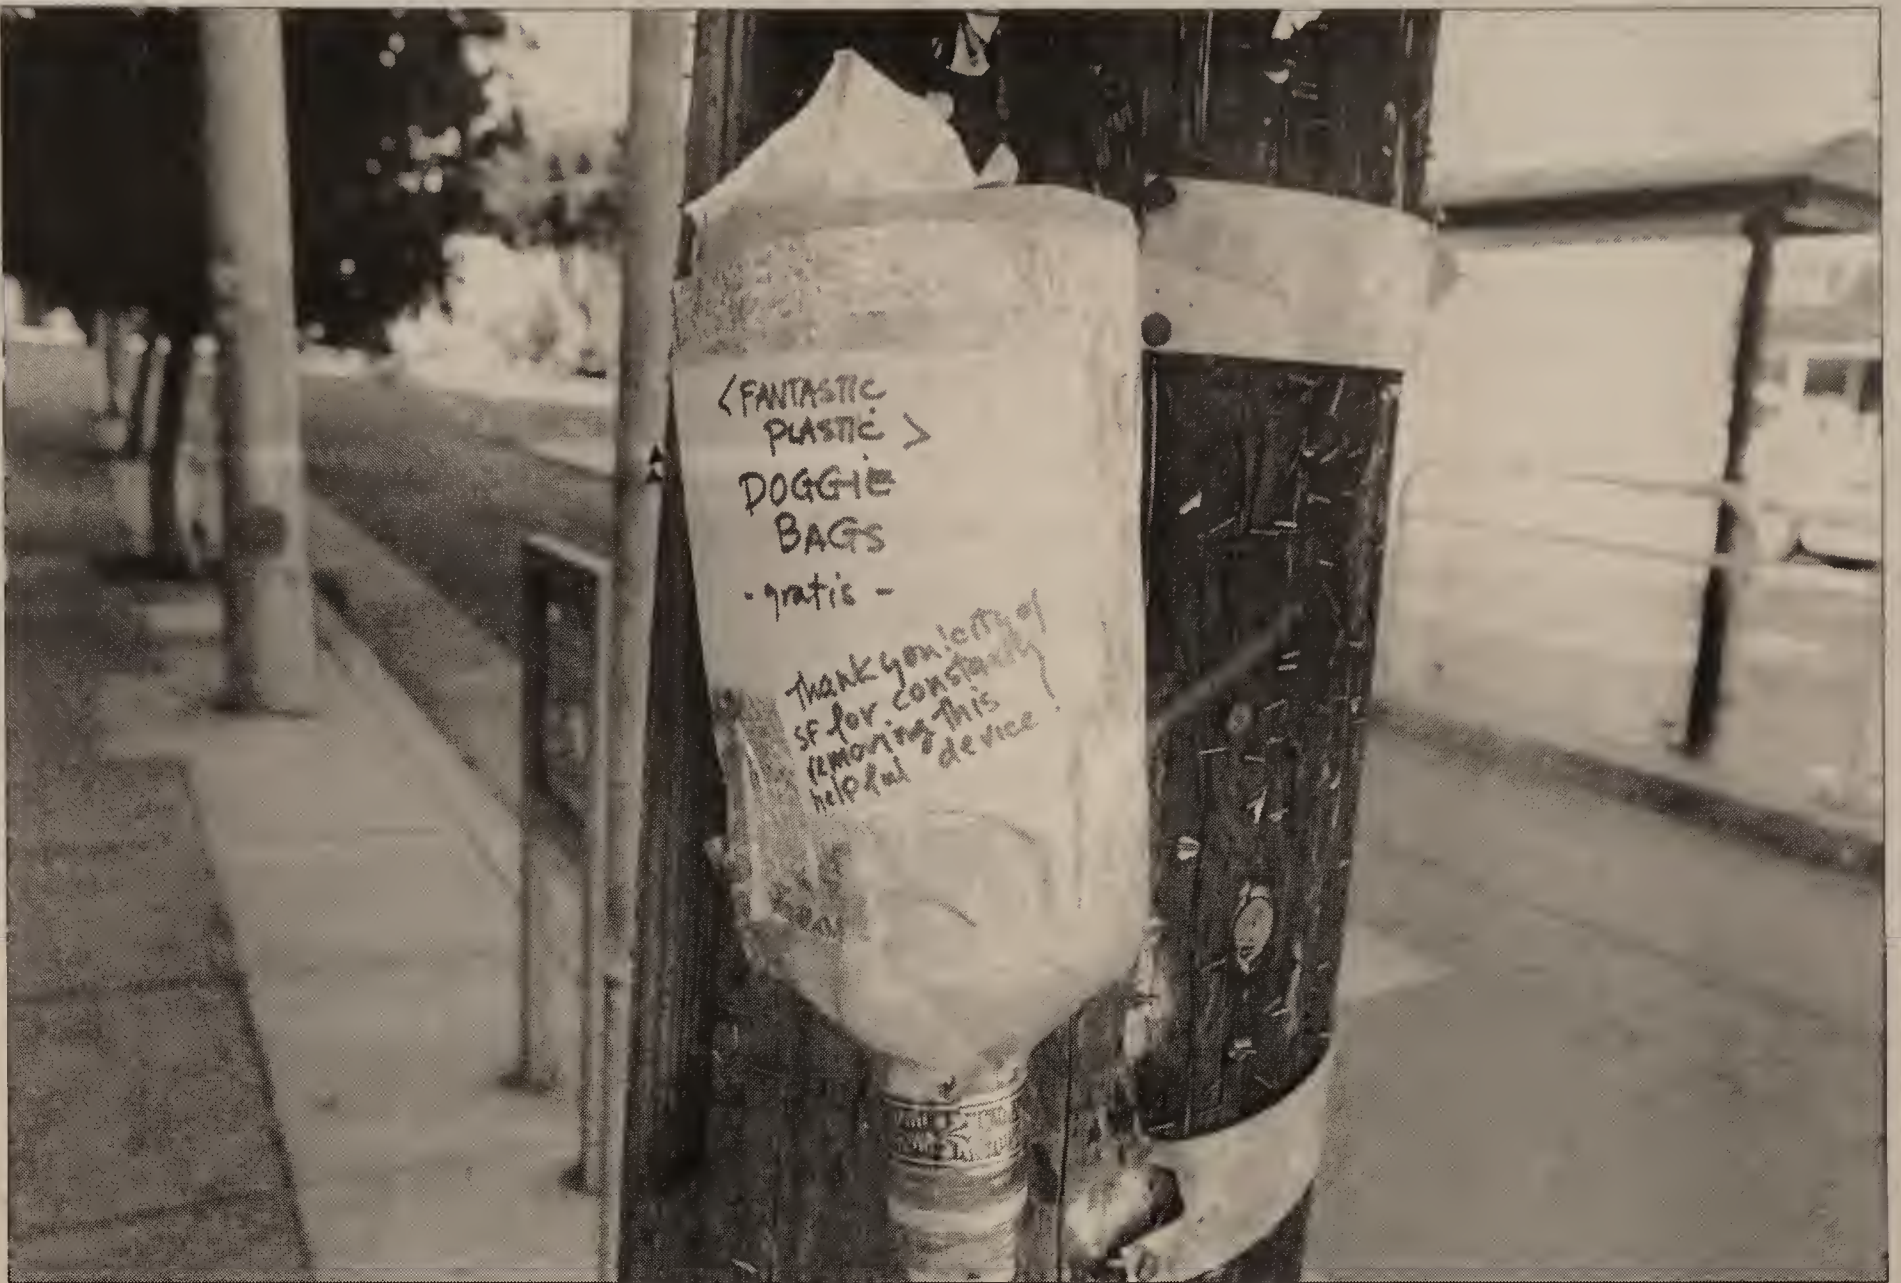 <FANTASTIC
PLASTIC>
DOGGIE
BAGS
-gratis-
Thank you! city of
SF for constantly
removing this
helpful device!